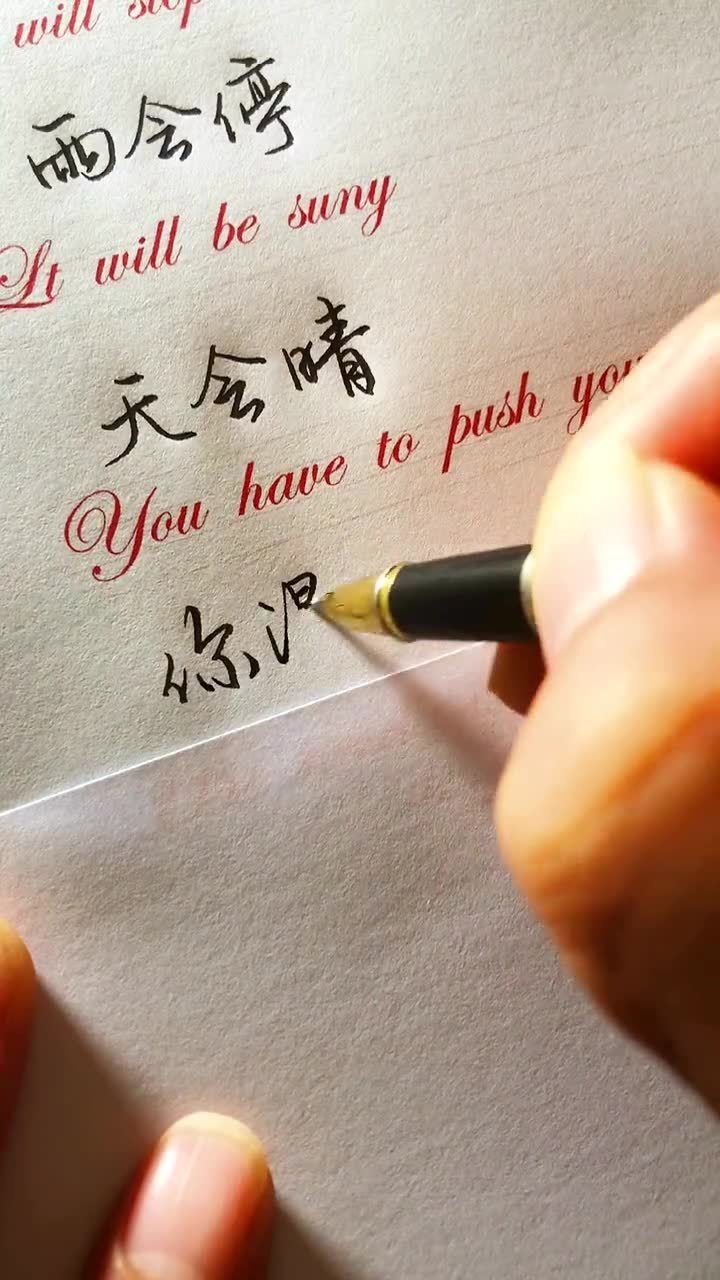 will stop
雨会停
It will be suny
天会晴
You have to push you
你